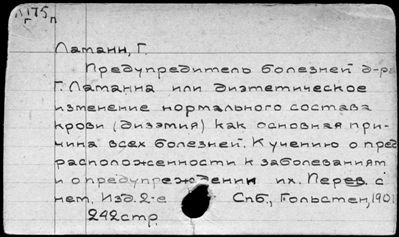 Л175
г п
Ламанн, Г.
Предупредитель болезней д-ра
Г. Ламанна или диэтетическое
изменение нормального состава
крови (дизэмия) как основная при-
чина всех болезней. К учению о пред
расположенности к заболеваниям
и о предупреждении их. Перев. с
нем. Изд. 2-е Спб., Гольстен, 1901
242стр.